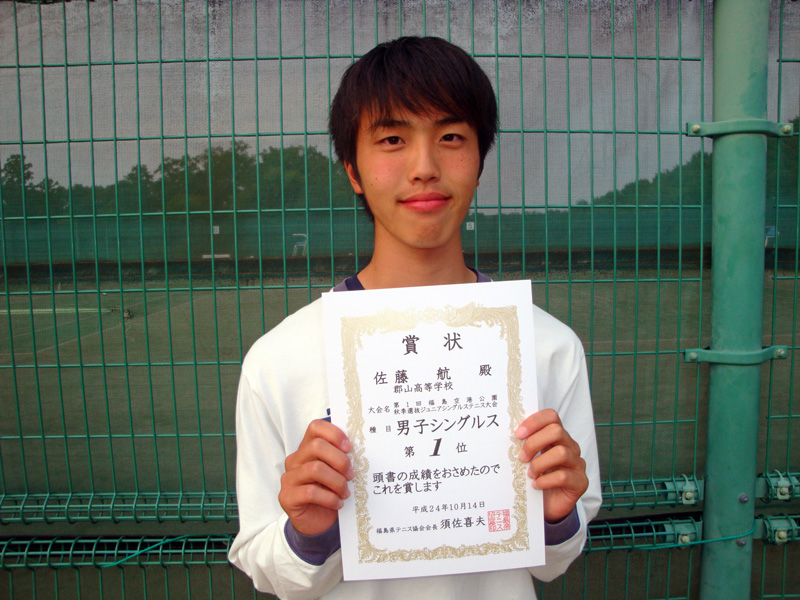 賞状
佐藤 航 殿
郡山高等学校
大会名 第1回福島空港公園
秋季選抜ジュニアシングルステニス大会
種目 男子シングルス
第 1 位
頭書の成績をおさめたので
これを賞します
平成24年10月14日
福島県テニス協会会長 須佐喜夫